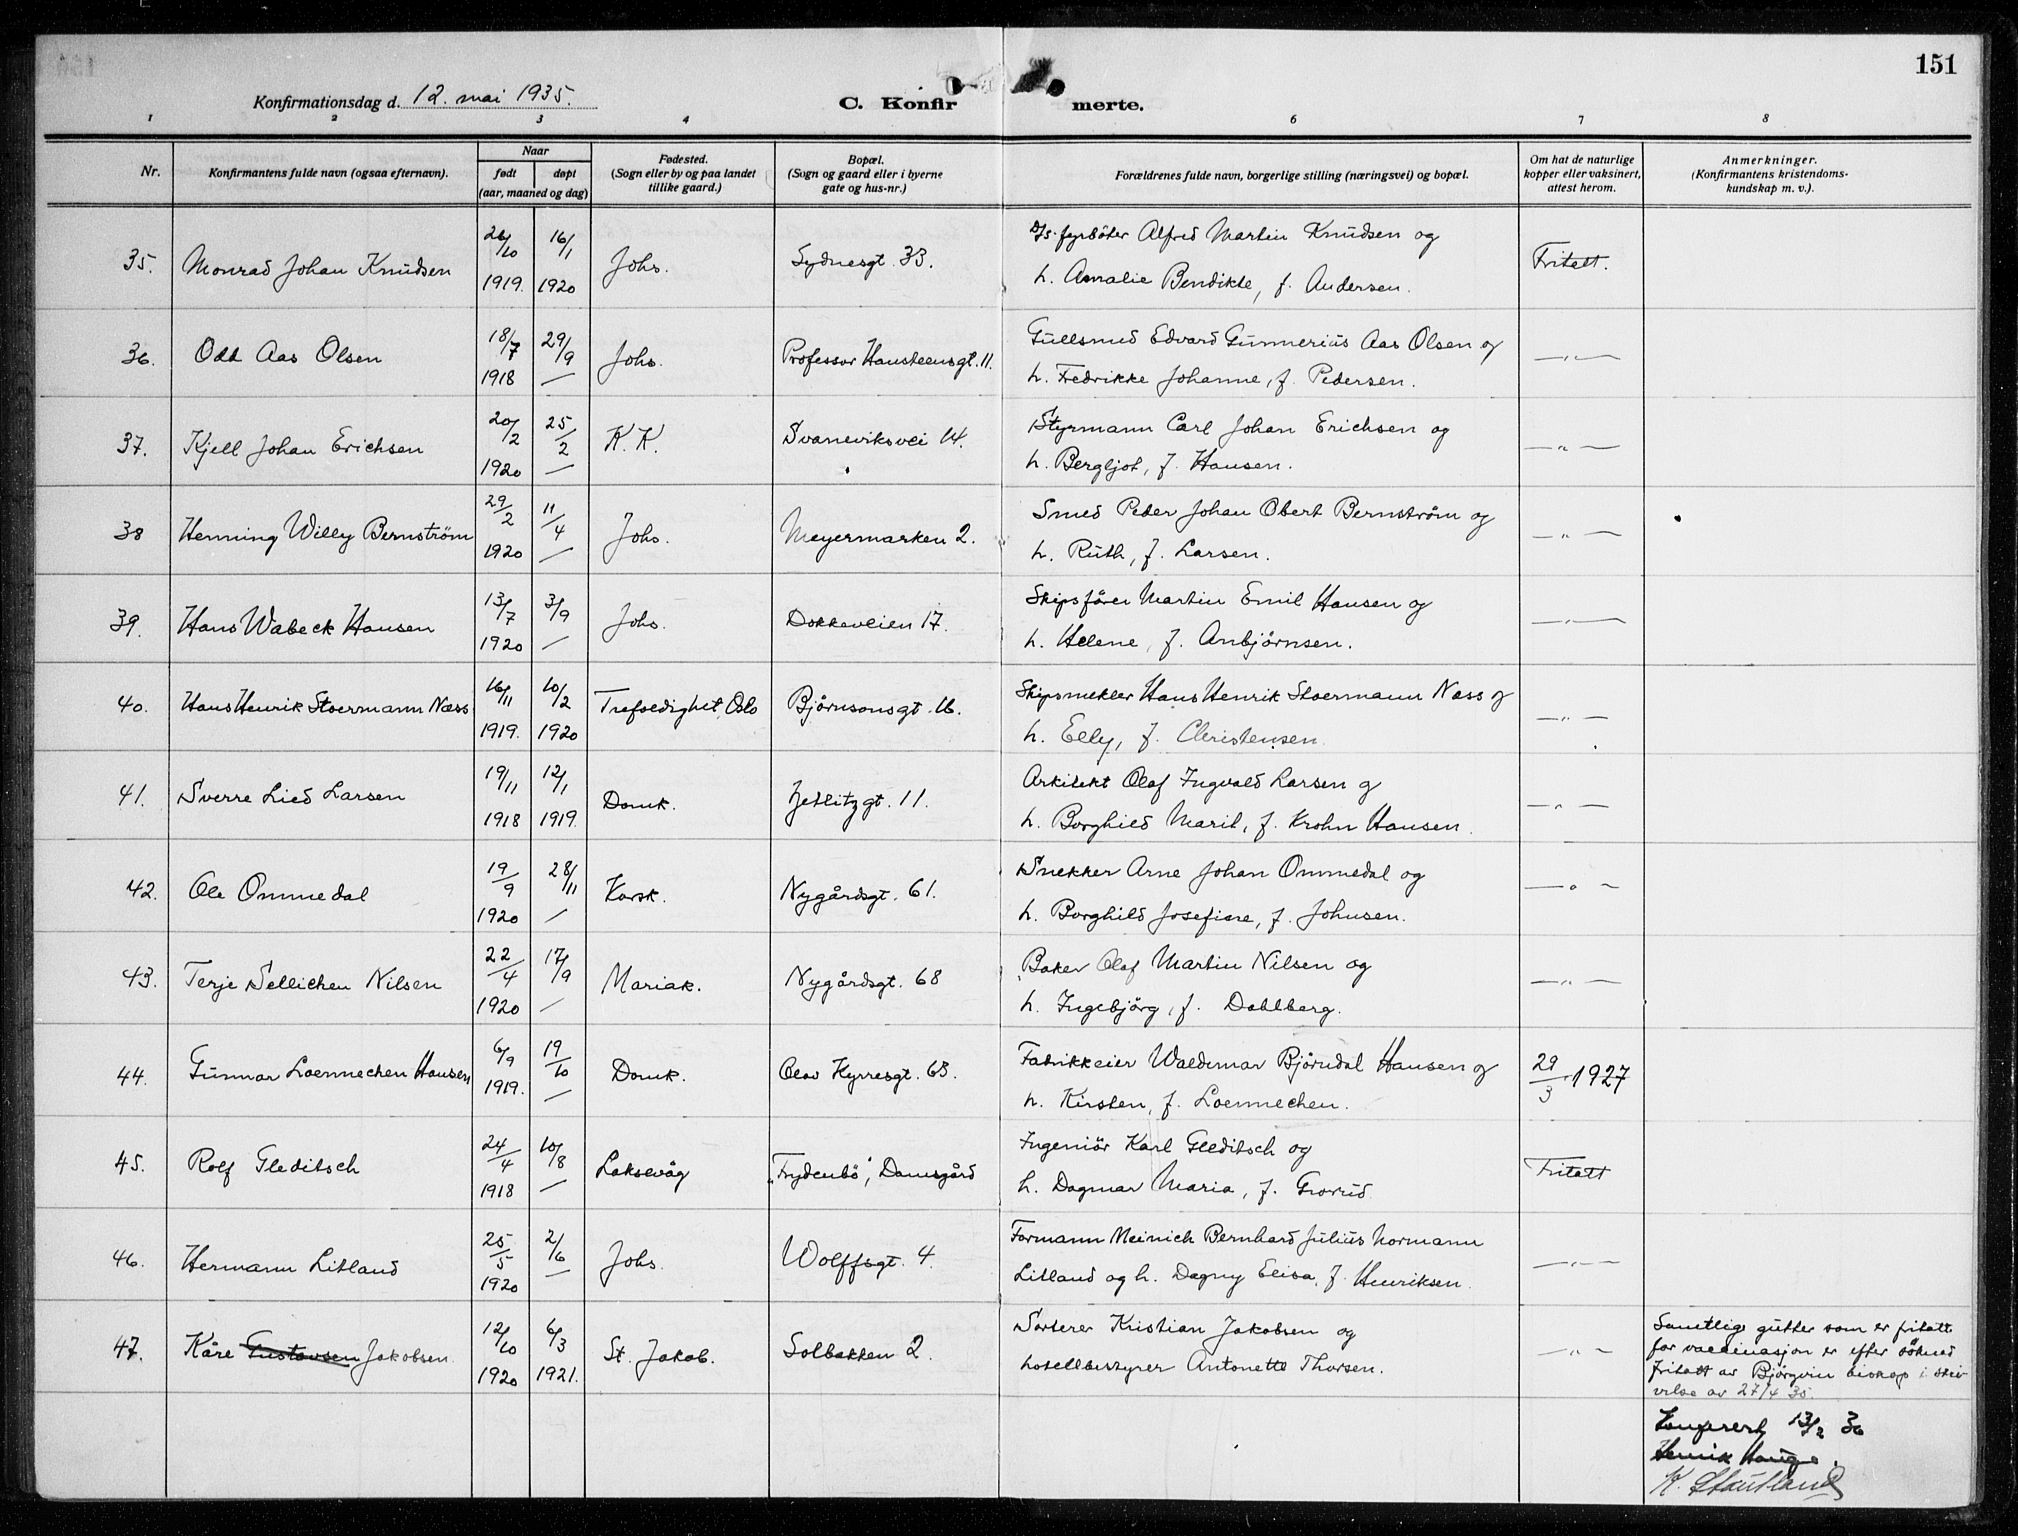 151
Konfirmationsdag d. 12. mai 1935.
C. Konfirmerte.
1 2 3 4 6 7 8
Nr.
Konfirmantens fulde navn (ogsaa efternavn).
Naar
født døpt
(aar, maaned og dag)
Fødested.
(Sogn eller by og paa landet
tillike gaard.)
Bopæl.
(Sogn og gaard eller i byerne
gate og hus-nr.)
Forældrenes fulde navn, borgerlige stilling (næringsvei) og bopæl.
Om hat de naturlige
kopper eller vaksinert,
attest herom.
Anmerkninger.
(Konfirmantens kristendoms-
kundskap m. v.).
35. Monrad Johan Knudsen 26/10 1919. 16/1 1920 Johs. Sydnesgt. 33.
fyrbøter Alfred Martin Knudsen og
h. Amalie Bendikte, f. Andersen.
Fritatt.
36. Odd Aas Olsen 18/7 1918 29/9 — Johs. Professor Hansteensgt. 11.
Gullsmed Edvard Gunnerius Aas Olsen og
h. Fredrikke Johanne, f. Pedersen.
—„—
37. Kjell Johan Erichsen 20/2 1920 25/2 — K.K. Svaneviksvei 14.
Styrmann Carl Johan Erichsen og
h. Bergljot, f. Hansen.
—„—
38 Henning Willy Bernstrøm 29/2 1920 11/4 — Johs. Meyermarken 2.
Smed Peder Johan Obert Bernstrøm og
h. Ruth, f. Larsen.
—„—
39. Hans Wabeck Hansen 13/7 1920 3/9 — Johs. Dokkeveien 17.
Skipsfører Martin Emil Hansen og
h. Helene, f. Anbjørnsen.
—„—
40. Hans Henrik Stoermann Næss 16/11 1919. 10/2 1920 Trefoldighet, Oslo Bjørnsonsgt. 16.
Skipsmekler Hans Henrik Stoermann Næss og
h. Elly, f. Christensen.
—„—
41. Sverre Lied Larsen 19/11 1918 12/1 1919. Domk. Zetlitzgt. 11.
Arkitekt Olaf Ingvald Larsen og
h. Borghild Marit, f. Krohn Hansen.
—„—
42. Ole Ommedal 19/9 1920 28/11 — Korsk. Nygårdsgt. 61.
Snekker Arne Johan Ommedal og
h. Borghild Josefine, f. Johnsen.
—„—
43. Terje Sellichen Nilsen 22/4 1920 17/9 — Mariak. Nygårdsgt. 68
Baker Olaf Martin Nilsen og
h. Ingebjørg, f. Dahlberg.
—„—
44. Gunnar Loennechen Hansen 6/9 1919. 19/10 — Domk. Olav Kyrresgt. 63.
Fabrikkeier Waldemar Bjørndal Hansen og
h. Kirsten, f. Loennechen.
29/3 1927
45. Rolf Gleditsch 24/4 1918 10/8 — Laksevåg „Frydenbø“, Damsgård
Ingeniør Karl Gleditsch og
h. Dagmar Maria, f. Grorud.
Fritatt
46. Hermann Litland 25/5 1920 2/6 — Johs. Wolffsgt. 4.
Formann Meinich Bernhard Julius Normann
Litland og h. Dagny Elisa, f. Henriksen.
—„—
47. Kåre Gustavsen Jakobsen. 12/10 1920 6/3 1921. St. Jakob. Solbakken 2.
Sorterer Kristian Jakobsen og
hotellbestyrer Antonette Thorsen.
—„—
Samtlige gutter som er fritatt
for vaccinasjon er efter søknad
fritatt av Bjørgvin biskop i skri-
velse av 27/4 35.
13/2 36
Henrik Hauge.
K. Stautland